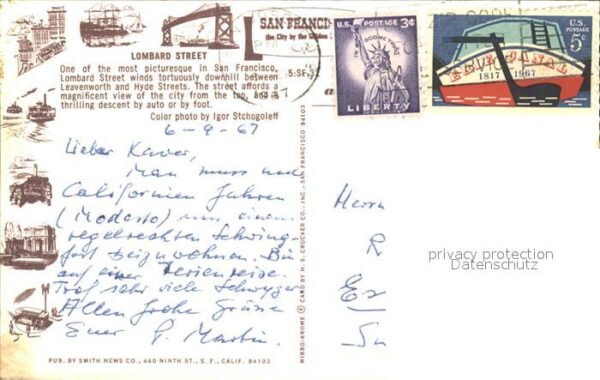 LOMBARD STREET
One of the most picturesque in San Francisco,
Lombard Street winds tortuously downhill between
Leavenworth and Hyde Streets. The street affords a
magnificent view of the city from the top, and a
thrilling descent by auto or by foot.
Color photo by Igor Stchogoleff
SAN FRANCI
the City by the Golden
U.S. POSTAGE 3¢
IN GOD WE TRUST
LIBERTY
U.S. POSTAGE
5c
ERIE CANAL
1817 1967
6-9-67
Lieber Kaver,
Man muss nach
Californien fahren
(Modesto) um einem
regelrechten Schwing-
fest beizuwohnen. Bin
auf einer Ferienreise.
Traf sehr viele Schwyzer
Allen frohe Grüsse
Euer P. Martin.
Herrn
R
Ex
privacy protection
Datenschutz
MIRRO-KROME ® CARD BY H. S. CROCKER CO., INC., SAN FRANCISCO, CALIF. 94103
PUB. BY SMITH NEWS CO., 460 NINTH ST., S. F., CALIF. 94103